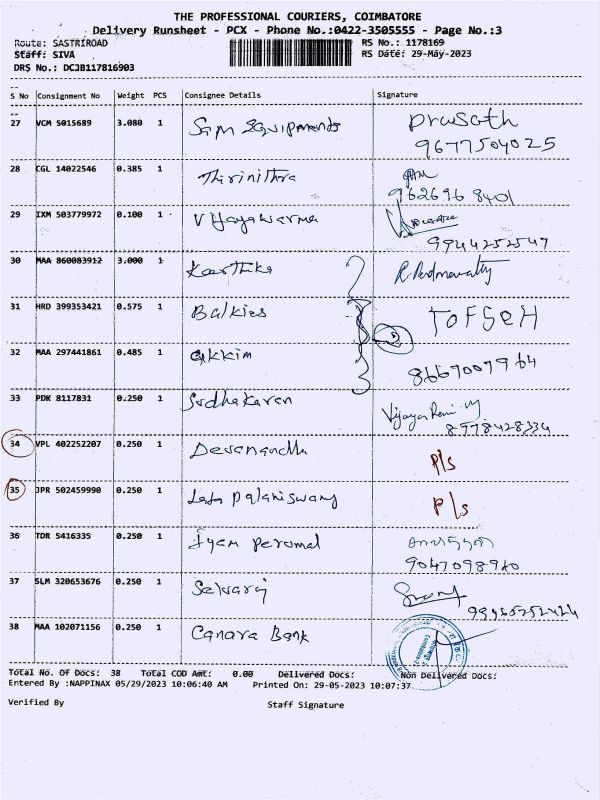 THE PROFESSIONAL COURIERS, COIMBATORE
Delivery Runsheet - PCX - Phone No.:0422-3505555 - Page No.:3
Route: SASTRIROAD RS No.: 1178169
Staff: SIVA RS Date: 29-May-2023
DRS No.: DCJB117816903
S No Consignment No Weight PCS Consignee Details Signature
27 VCM 5015689 3.080 1 Sam Equipments Prasath
9677504025
28 CGL 14022546 0.385 1 Thirinithra
962696 8401
29 IXM 503779972 0.100 1 Vijayavarma
9944252547
30 MAA 860083912 3.000 1 Karthika R Padmavathy
31 HRD 399353421 0.575 1 Balkies TOFSEH
32 MAA 297441861 0.485 1 akkim 8667007964
33 PDK 8117831 0.250 1 Sudhakaran
8978428334
34 VPL 402252207 0.250 1 Devanandha P/s
35 JPR 502459990 0.250 1 Lata Palaniswamy P/s
36 TDR 5416335 0.250 1 Iyam Perumal
9047098940
37 SLM 320653676 0.250 1 Selvaraj
38 MAA 102071156 0.250 1 Canara Bank
Total No. Of Docs: 38 Total COD Amt: 0.00 Delivered Docs: Non Delivered Docs:
Entered By :NAPPINAX 05/29/2023 10:06:40 AM Printed On: 29-05-2023 10:07:37
Verified By Staff Signature